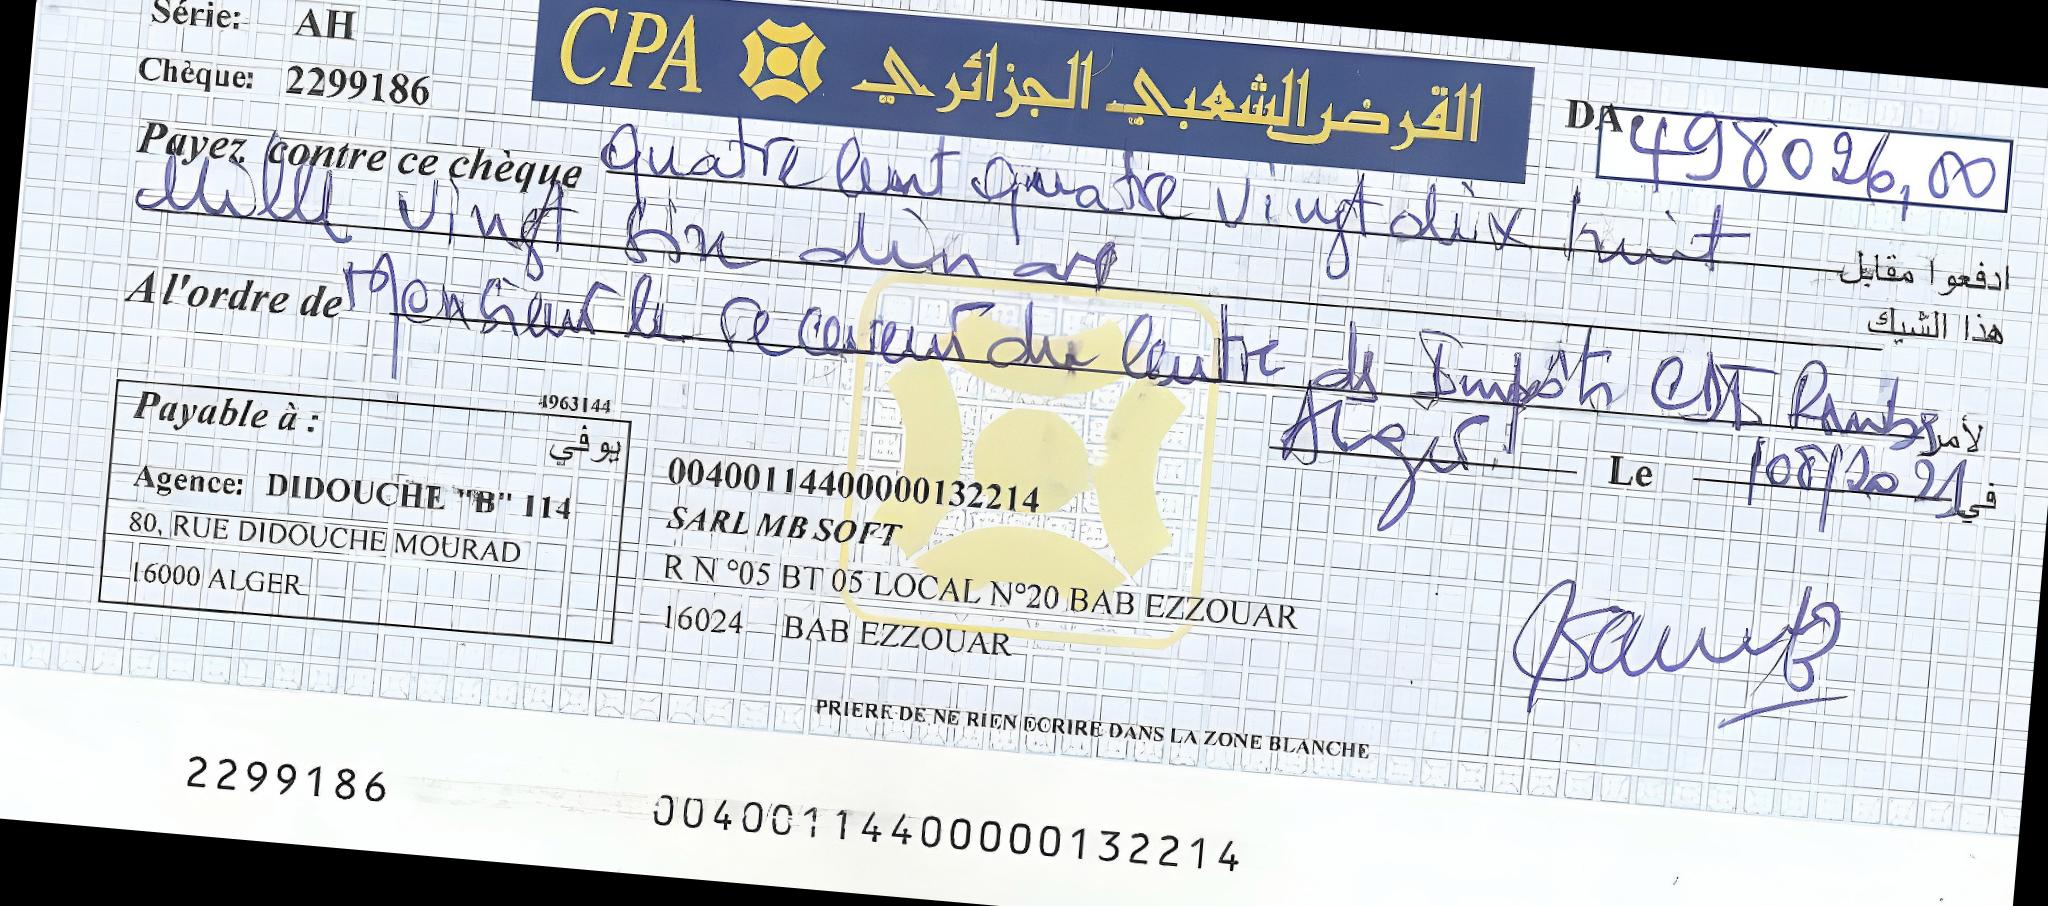 Série: AH
CPA القرض الشعبي الجزائري
Chèque: 2299186
DA 498026,00
Payez contre ce chèque quatre cent quatre vingt dix huit
mille vingt six dinars
ادفعوا مقابل
هذا الشيك
A l'ordre de Monsieur le receveur du centre de Impôts CDI
لأمر
Alger Le /08/2021 في
4963144
Payable à :
يوفي
Agence: DIDOUCHE "B" 114
80, RUE DIDOUCHE MOURAD
16000 ALGER
00400114400000132214
SARL MB SOFT
R N °05 BT 05 LOCAL N°20 BAB EZZOUAR
16024 BAB EZZOUAR
PRIERE DE NE RIEN ECRIRE DANS LA ZONE BLANCHE
2299186
00400114400000132214